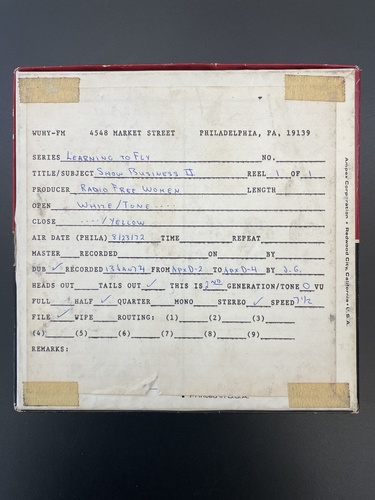 WUHY-FM 4548 MARKET STREET PHILADELPHIA, PA, 19139
SERIES LEARNING TO FLY NO.
TITLE/SUBJECT SHOW BUSINESS II REEL 1 OF 1
PRODUCER RADIO FREE WOMEN LENGTH
OPEN WHITE/TONE ....
CLOSE ..../YELLOW
AIR DATE (PHILA) 8/23/72 TIME REPEAT
MASTER RECORDED ON BY
DUB ✓ RECORDED 13 JAN 74 FROM APX D-2 TO APX D-4 BY J.G.
HEADS OUT TAILS OUT ✓ THIS IS 2ND GENERATION/TONE 0 VU
FULL HALF ✓ QUARTER MONO STEREO ✓ SPEED 7½
FILE ✓ WIPE ROUTING: (1) (2) (3)
(4) (5) (6) (7) (8) (9)
REMARKS:
Ampex Corporation • Redwood City, California • U.S.A.